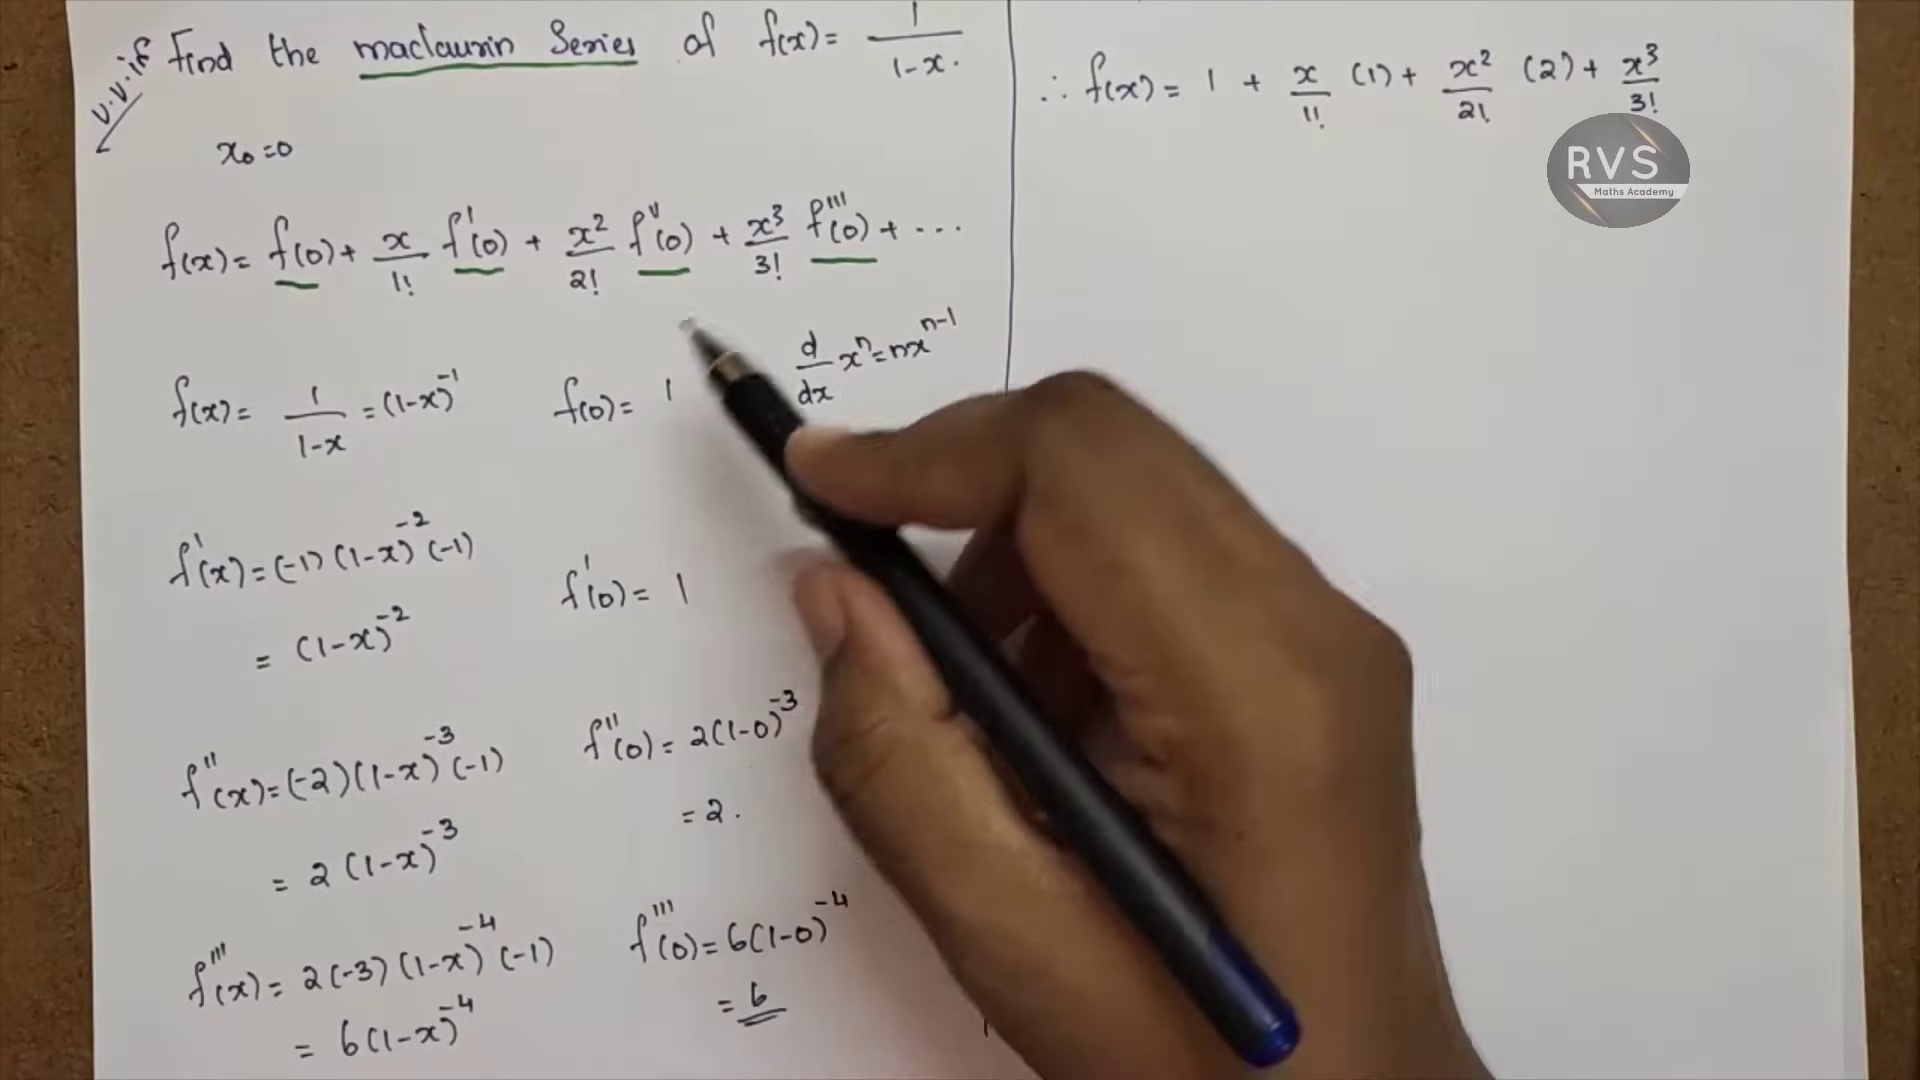 v.v.if
Find the maclaurin Series of f(x) = 1/1-x.
x₀=0
f(x) = f(0) + x/1! f'(0) + x²/2! f''(0) + x³/3! f'''(0) + ...
f(x) = 1/1-x = (1-x)⁻¹ f(0) = 1 d/dx xⁿ = nxⁿ⁻¹
f'(x) = (-1)(1-x)⁻²(-1)
f'(0) = 1
= (1-x)⁻²
f''(x) = (-2)(1-x)⁻³(-1) f''(0) = 2(1-0)⁻³
= 2.
= 2(1-x)⁻³
f'''(x) = 2(-3)(1-x)⁻⁴(-1) f'''(0) = 6(1-0)⁻⁴
= 6
= 6(1-x)⁻⁴
∴ f(x) = 1 + x/1! (1) + x²/2! (2) + x³/3!
RVS
Maths Academy